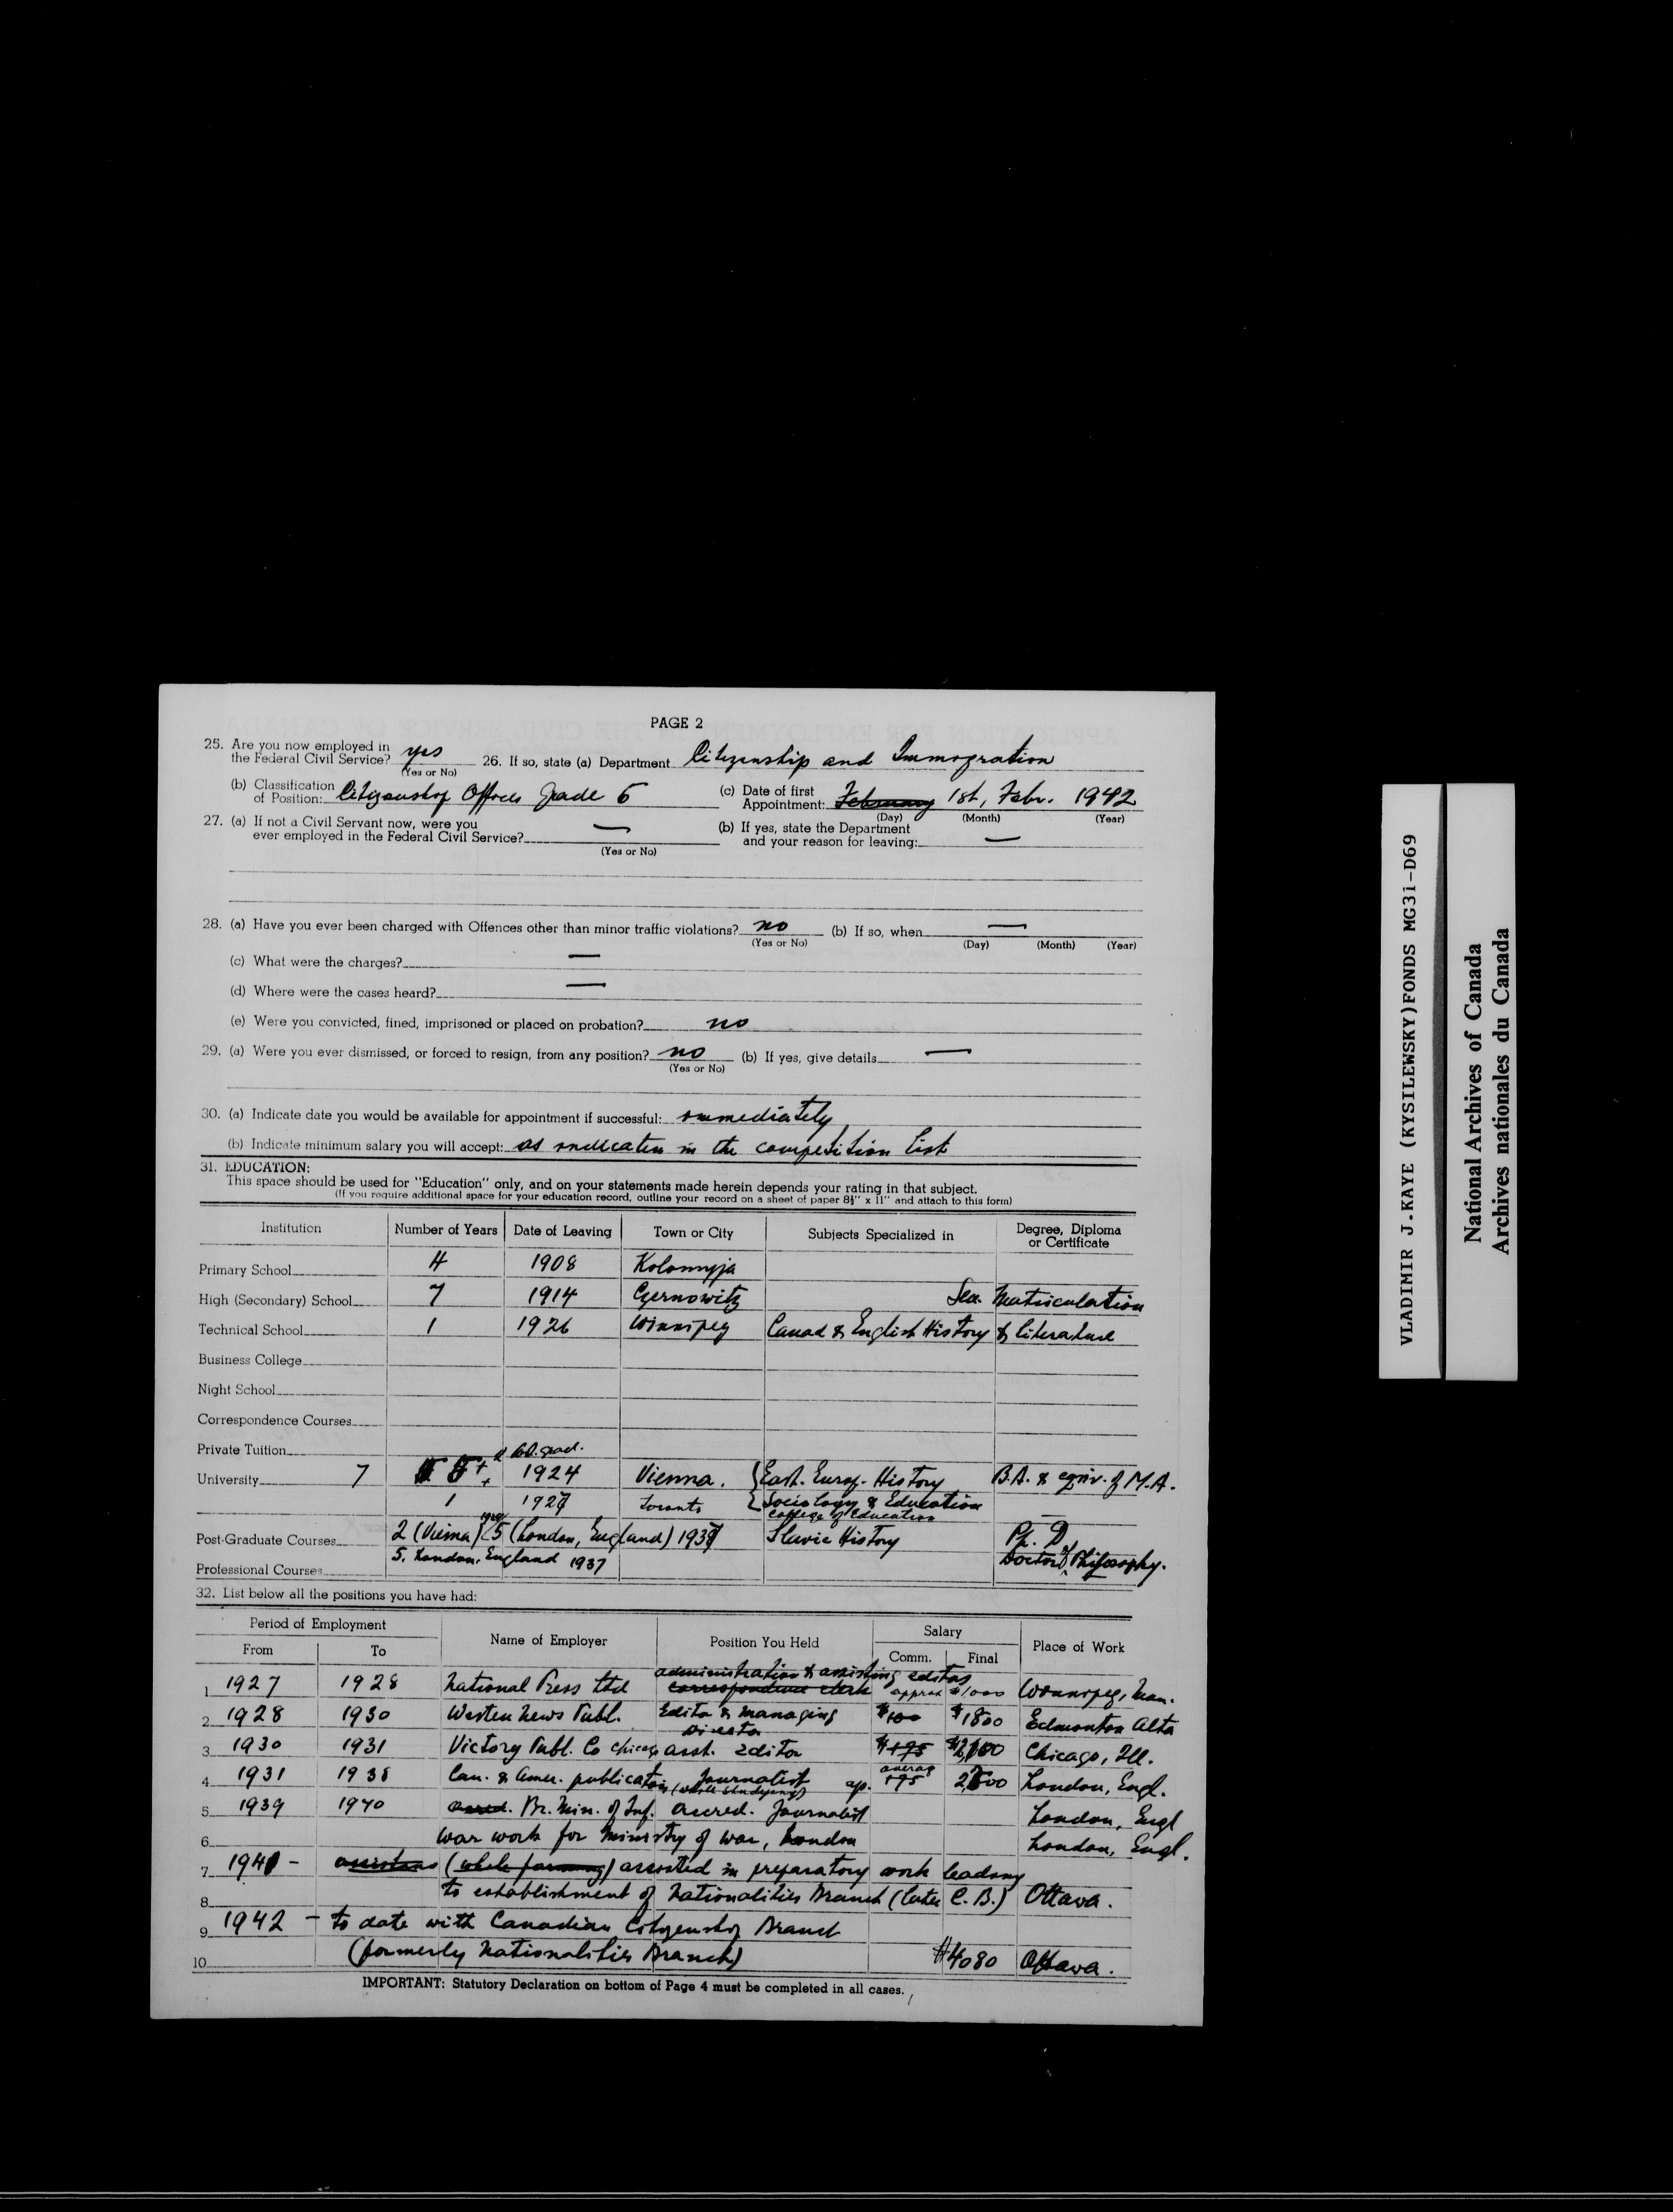 PAGE 2
25. Are you now employed in the Federal Civil Service? yes (Yes or No) 26. If so, state (a) Department Citizenship and Immigration
(b) Classification of Position: Citizenship Officer Grade 6 (c) Date of first Appointment: February 1st, Febr. 1942
(Day) (Month) (Year)
27. (a) If not a Civil Servant now, were you ever employed in the Federal Civil Service? — (Yes or No) (b) If yes, state the Department and your reason for leaving: —
28. (a) Have you ever been charged with Offences other than minor traffic violations? no (b) If so, when —
(Yes or No) (Day) (Month) (Year)
(c) What were the charges? —
(d) Where were the cases heard? —
(e) Were you convicted, fined, imprisoned or placed on probation? no
29. (a) Were you ever dismissed, or forced to resign, from any position? no (b) If yes, give details —
(Yes or No)
30. (a) Indicate date you would be available for appointment if successful: immediately
(b) Indicate minimum salary you will accept: as indicated in the competition list
31. EDUCATION:
This space should be used for "Education" only, and on your statements made herein depends your rating in that subject.
(If you require additional space for your education record, outline your record on a sheet of paper 8½" x 11" and attach to this form)
Institution Number of Years Date of Leaving Town or City Subjects Specialized in Degree, Diploma or Certificate
Primary School 4 1908 Kolomyja
High (Secondary) School 7 1914 Czernowitz Sen. Matriculation
Technical School 1 1926 Winnipeg Canad & English History & literature
Business College
Night School
Correspondence Courses
Private Tuition
University 7 5+ 1924 Vienna. East. Europ. History B.A. & equiv. of M.A.
1 1927 Toronto Sociology & Education
College of Education
Post-Graduate Courses 2 (Vienna) 5 (London, England) 1937 Slavic History Ph. D
5. London, England 1937 Doctor of Philosophy.
Professional Courses
32. List below all the positions you have had:
Period of Employment Name of Employer Position You Held Salary Place of Work
From To Comm. Final
administration & assisting editor
1 1927 1928 National Press Ltd correspondence clerk approx $1000 Winnipeg, Man.
2 1928 1930 Western News Publ. Editor & managing Director $100 $1800 Edmonton Alta
3 1930 1931 Victory Publ. Co Chicago asst. Editor $175 Chicago, Ill.
4 1931 1938 Can. & Amer. publications Journalist (while studying) ap. averag 175 London, Engl.
5 1939 1940 accred. Br. Min. of Inf. accred. Journalist London, Engl
6 war work for Ministry of war, London London, Engl.
7 1941 - assistens (while farming) assisted in preparatory work leading
8 to establishment of Nationalities Branch (later C. B.) Ottawa.
9 1942 - to date with Canadian Citizenship Branch
10 (formerly Nationalities Branch) $4080 Ottawa.
IMPORTANT: Statutory Declaration on bottom of Page 4 must be completed in all cases.
VLADIMIR J.KAYE (KYSILEWSKY)FONDS MG31-D69
National Archives of Canada
Archives nationales du Canada